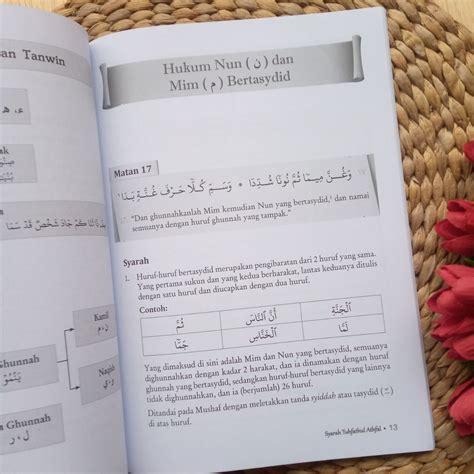 san Tanwin
ء، هـ
ak
صِنْوَا
بُنْيَ
صِفْ ذَا ثَنَا كَمْ جَادَ شَخْصٌ قَدْ سَمَا
Kamil
ن، م
Ghunnah
يَنْمُو
Naqish
و، ي
Ghunnah
ل، ر
Hukum Nun ( ن ) dan
Mim ( م ) Bertasydid
Matan 17
وَغُنَّ مِيمًا ثُمَّ نُونًا شُدِّدَا * وَسَمِّ كُلًّا حَرْفَ غُنَّةٍ بَدَا
"Dan ghunnahkanlah Mim kemudian Nun yang bertasydid,¹ dan namai
semuanya dengan huruf ghunnah yang tampak."
Syarah
1. Huruf-huruf bertasydid merupakan pengibaratan dari 2 huruf yang sama.
Yang pertama sukun dan yang kedua berharakat, lantas keduanya ditulis
dengan satu huruf dan diucapkan dengan dua huruf.
Contoh:
ثُمَّ أَنَّ ٱلنَّاسَ ٱلْجَنَّةِ
جَمًّا ٱلْخَنَّاسِ لَمَّا
Yang dimaksud di sini adalah Mim dan Nun yang bertasydid, semuanya
dighunnahkan dengan kadar 2 harakat, dan ia dinamakan dengan huruf
ghunnah yang bertasydid, sedangkan huruf-huruf bertasydid lainnya
tidak dighunnahkan, dan ia (berjumlah) 26 huruf.
Ditandai pada Mushaf dengan meletakkan tanda syiddah atau tasydid ( ّ )
di atas huruf.
Syarah Tuhfathul Athfal • 13